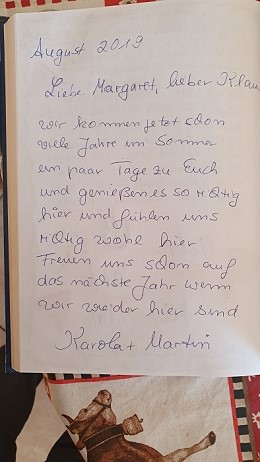 August 2019
Liebe Margaret, lieber Klaus
wir kommen jetzt schon
viele Jahre im Sommer
ein paar Tage zu Euch
und genießen es so richtig
hier und fühlen uns
richtig wohl hier
Freuen uns schon auf
das nächste Jahr wenn
wir wieder hier sind
Karola + Martin